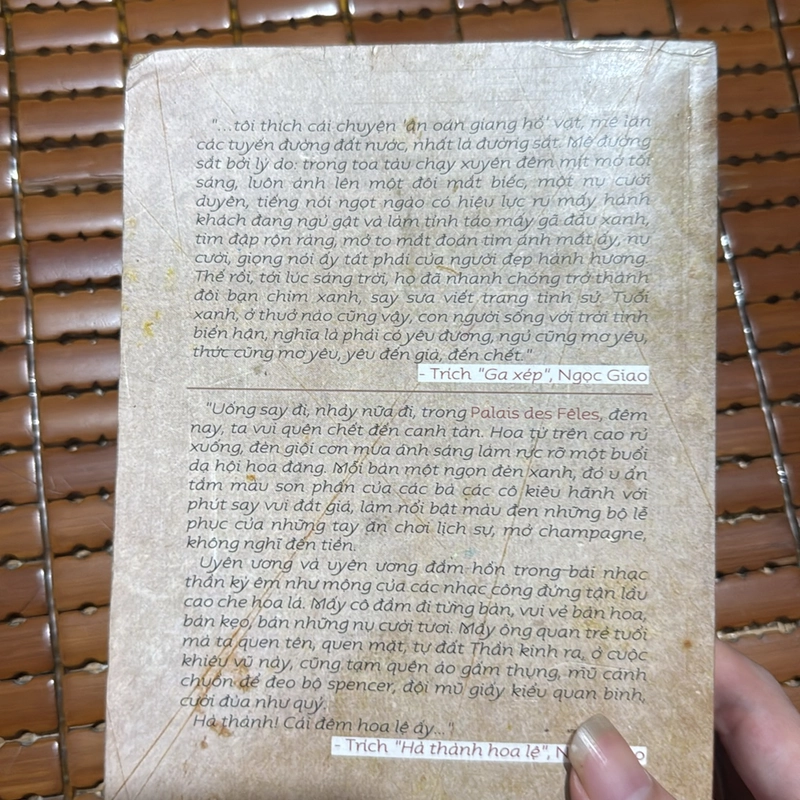 "...tôi thích cái chuyện 'ân oán giang hồ' vặt, mê lăn
các tuyến đường đất nước, nhất là đường sắt. Mê đường
sắt bởi lý do: trong toa tàu chạy xuyên đêm mịt mờ tối
sáng, luôn ánh lên một đôi mắt biếc, một nụ cười
duyên, tiếng nói ngọt ngào có hiệu lực ru mấy hành
khách đang ngủ gật và làm tỉnh táo mấy gã đầu xanh,
tim đập rộn ràng, mở to mắt đoán tìm ánh mắt ấy, nụ
cười, giọng nói ấy tất phải của người đẹp hành hương.
Thế rồi, tới lúc sáng trời, họ đã nhanh chóng trở thành
đôi bạn chim xanh, say sưa viết trang tình sử. Tuổi
xanh, ở thuở nào cũng vậy, con người sống với trời tình
biển hận, nghĩa là phải có yêu đương, ngủ cũng mơ yêu,
thức cũng mơ yêu, yêu đến già, đến chết."
- Trích "Ga xép", Ngọc Giao
"Uống say đi, nhảy nữa đi, trong Palais des Fêles, đêm
nay, ta vui quên chết đến canh tàn. Hoa từ trên cao rủ
xuống, đèn giội cơn mưa ánh sáng làm rực rỡ một buổi
dạ hội hoa đăng. Mỗi bàn một ngọn đèn xanh, đỏ u ẩn
tắm màu son phấn của các bà các cô kiêu hãnh với
phút say vui đắt giá, làm nổi bật màu đen những bộ lễ
phục của những tay ăn chơi lịch sự, mở champagne,
không nghĩ đến tiền.
Uyên ương và uyên ương đắm hồn trong bài nhạc
thần kỳ êm như mộng của các nhạc công đứng tận lầu
cao che hoa lá. Mấy cô đầm đi từng bàn, vui vẻ bán hoa,
bán kẹo, bán những nụ cười tươi. Mấy ông quan trẻ tuổi
mà ta quen tên, quen mặt, tự đất Thần kinh ra, ở cuộc
khiêu vũ này, cũng tạm quên áo gấm thụng, mũ cánh
chuồn để đeo bộ spencer, đội mũ giấy kiểu quan binh,
cười đùa như quỷ.
Hà thành! Cái đêm hoa lệ ấy..."
- Trích "Hà thành hoa lệ",